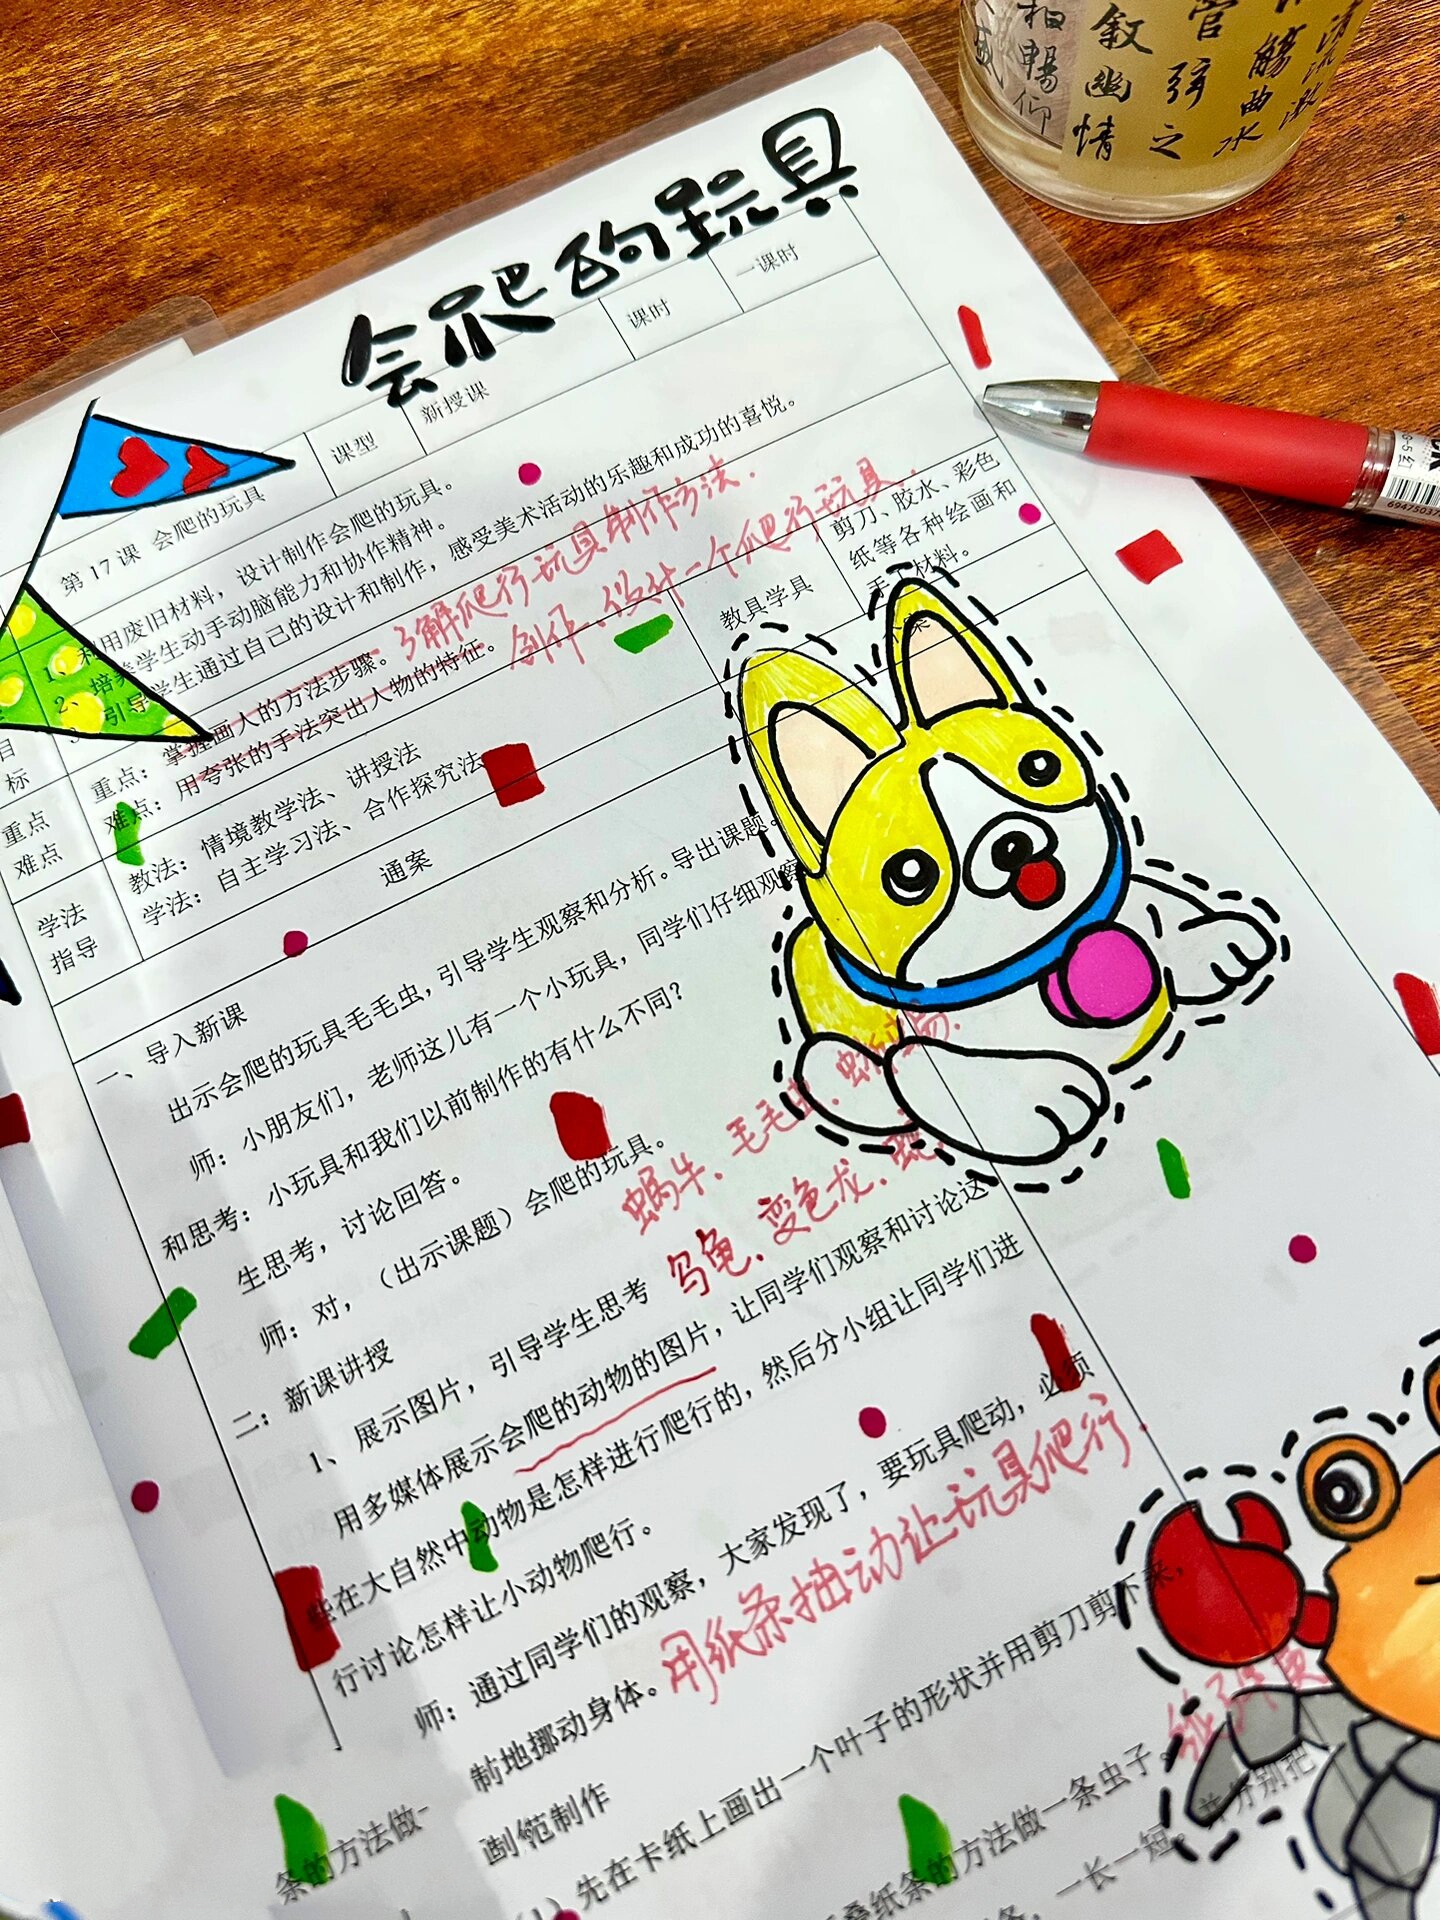 会爬的玩具
第 17 课 会爬的玩具
课型
新授课
课时
一课时
目
标
1、利用废旧材料，设计制作会爬的玩具。
2、培养学生动手动脑能力和协作精神。
3、引导学生通过自己的设计和制作，感受美术活动的乐趣和成功的喜悦。
重点
难点
重点：掌握画人的方法步骤。 了解爬行玩具制作方法.
难点：用夸张的手法突出人物的特征。 创作、设计一个爬行玩具.
学法
指导
教法：情境教学法、讲授法
学法：自主学习法、合作探究法
教具学具
剪刀、胶水、彩色
纸等各种绘画和
手工材料。
通案
一、导入新课
出示会爬的玩具毛毛虫，引导学生观察和分析。导出课题。
师：小朋友们，老师这儿有一个小玩具，同学们仔细观察
和思考：小玩具和我们以前制作的有什么不同？
生思考，讨论回答。
师：对，（出示课题）会爬的玩具。
蜗牛、毛毛虫、
二：新课讲授
1、展示图片，引导学生思考 乌龟、变色龙、
用多媒体展示会爬的动物的图片，让同学们观察和讨论这
些在大自然中动物是怎样进行爬行的，然后分小组让同学们进
行讨论怎样让小动物爬行。
师：通过同学们的观察，大家发现了，要玩具爬动，必须
制地挪动身体。 用纸条抽动让玩具爬行.
制范制作
（1）先在卡纸上画出一个叶子的形状并用剪刀剪下来，
叠纸条的方法做一条虫子。
条的方法做一
一长一短。并分别把
相畅仰
叙幽情
管弦之
觞曲水
清流激